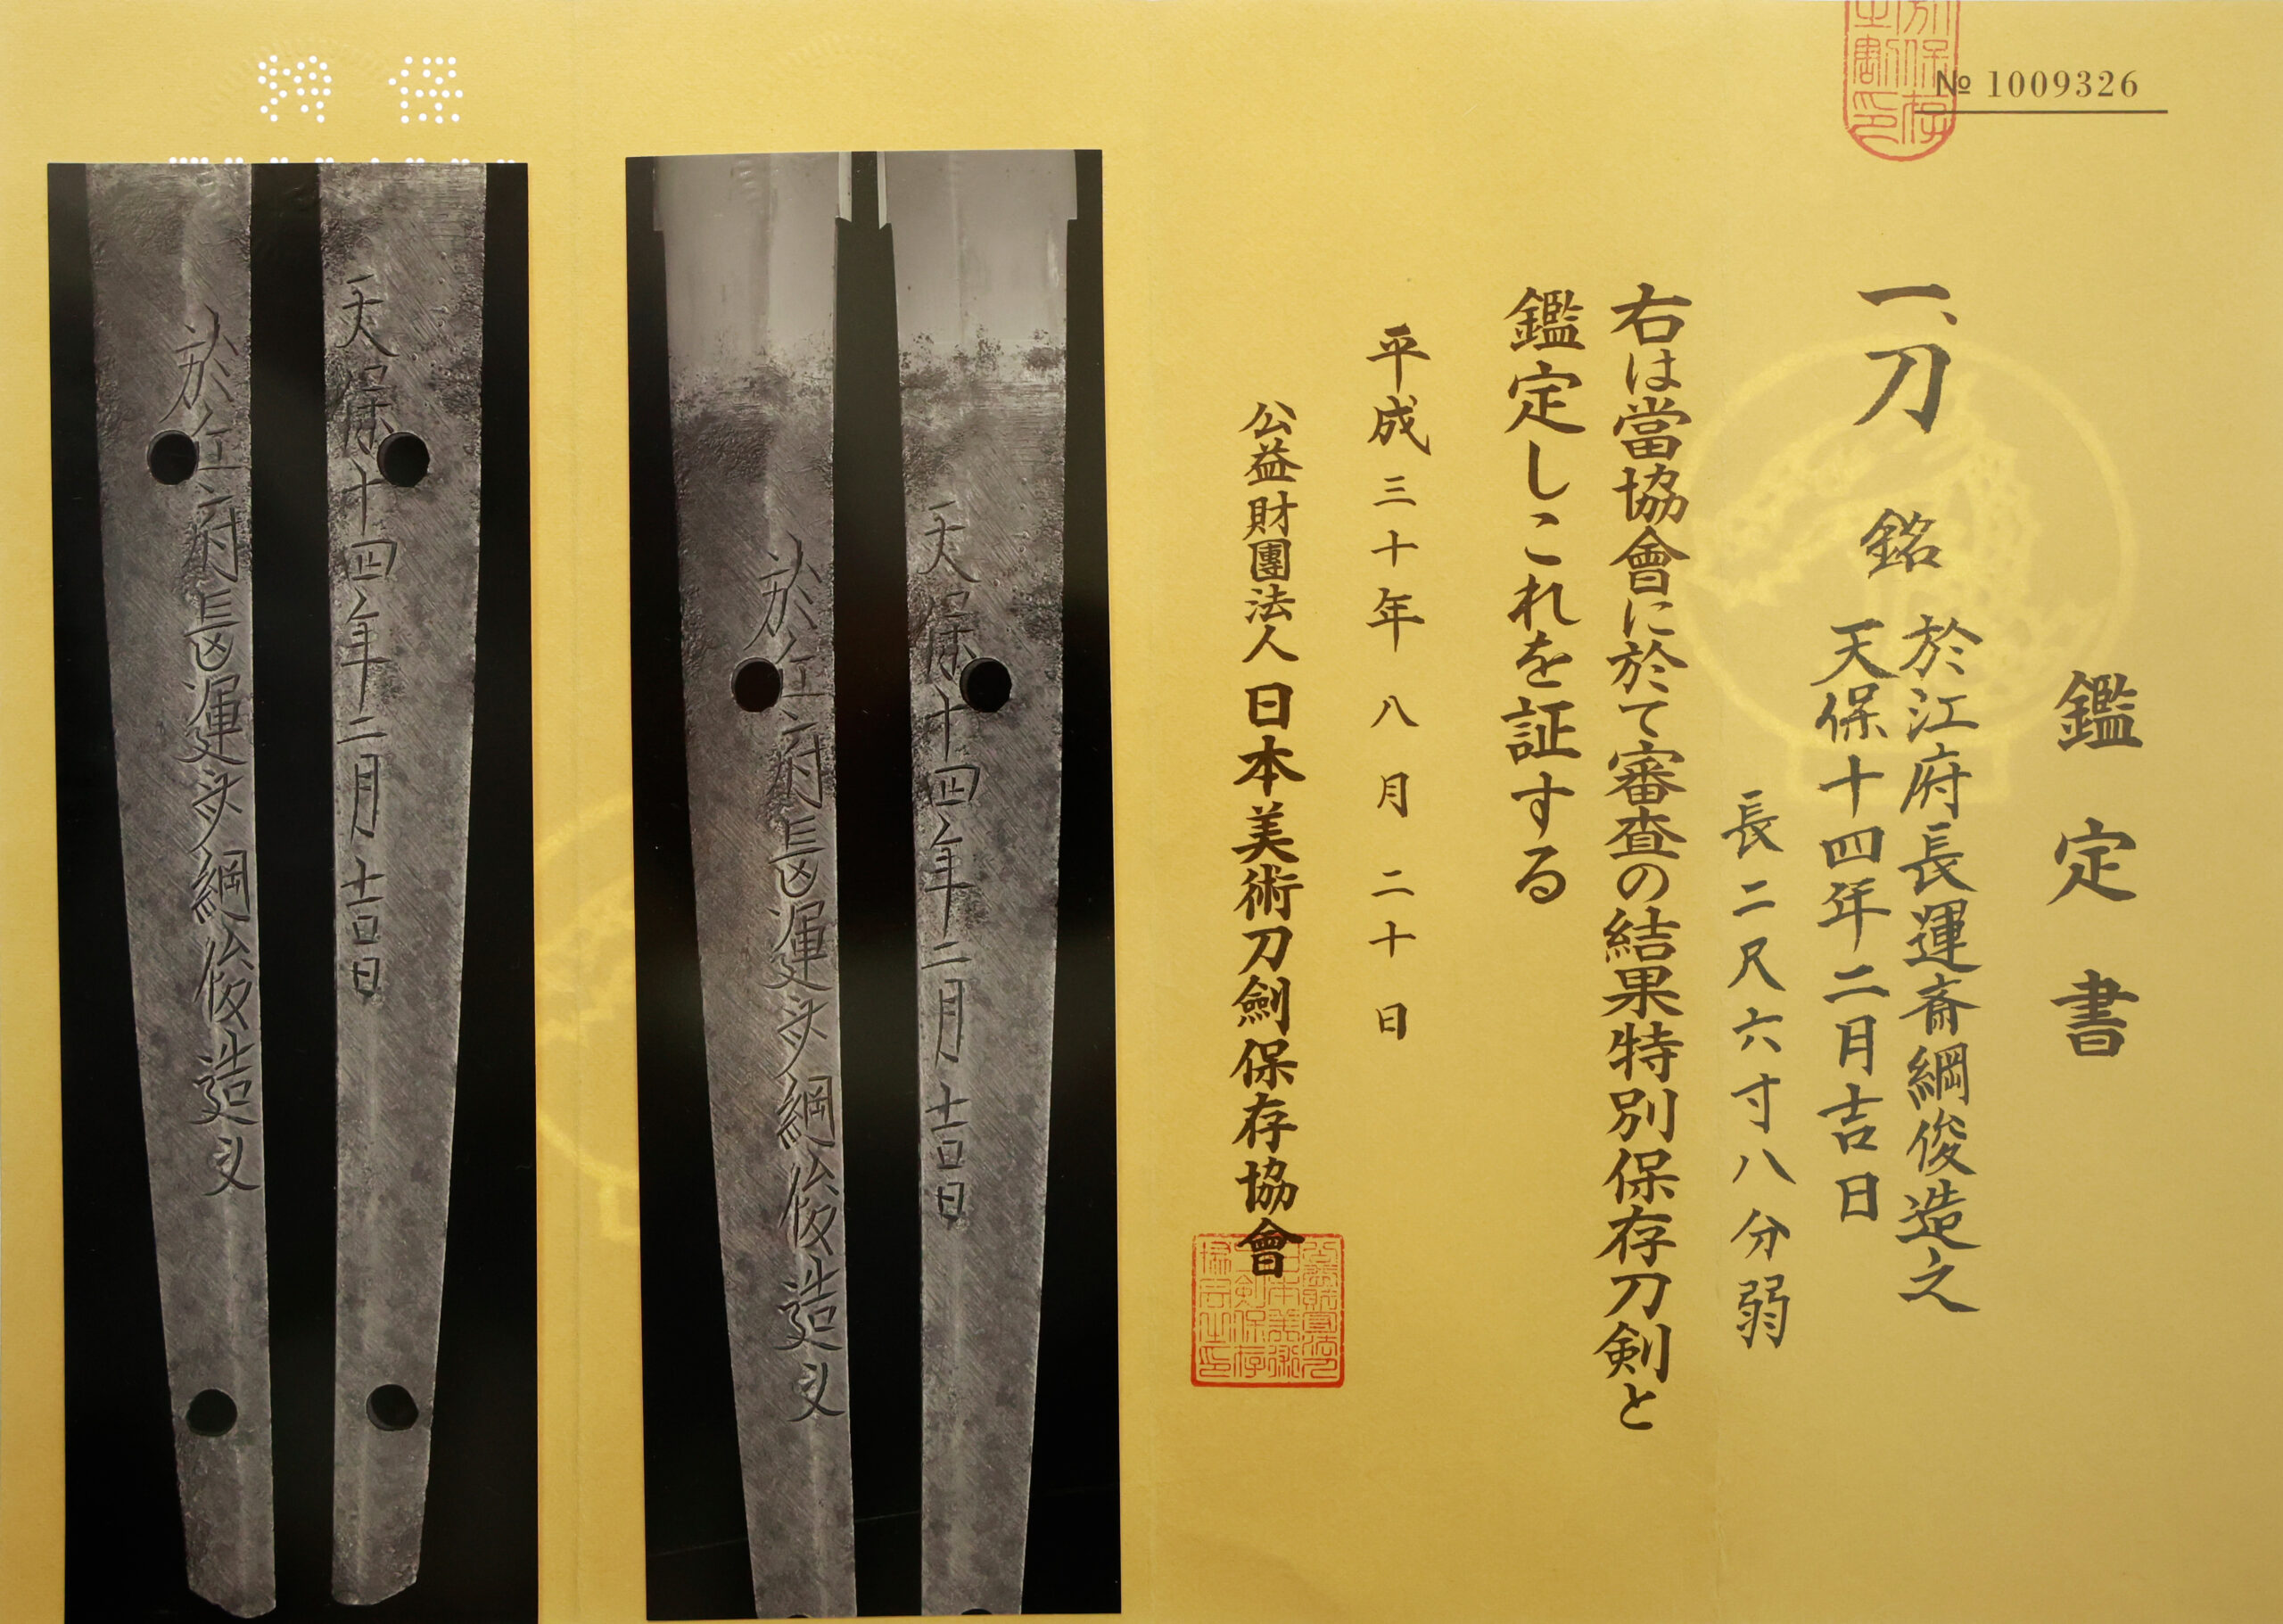 № 1009326
鑑定書
一、刀 銘 於江府長運斎綱俊造之
天保十四年二月吉日
長二尺六寸八分弱
右は當協會に於て審査の結果特別保存刀剣と
鑑定しこれを証する
平成三十年八月二十日
公益財團法人 日本美術刀劍保存協會
天保十四年二月吉日
於江府長運斎綱俊造之
天保十四年二月吉日
於江府長運斎綱俊造之
特保